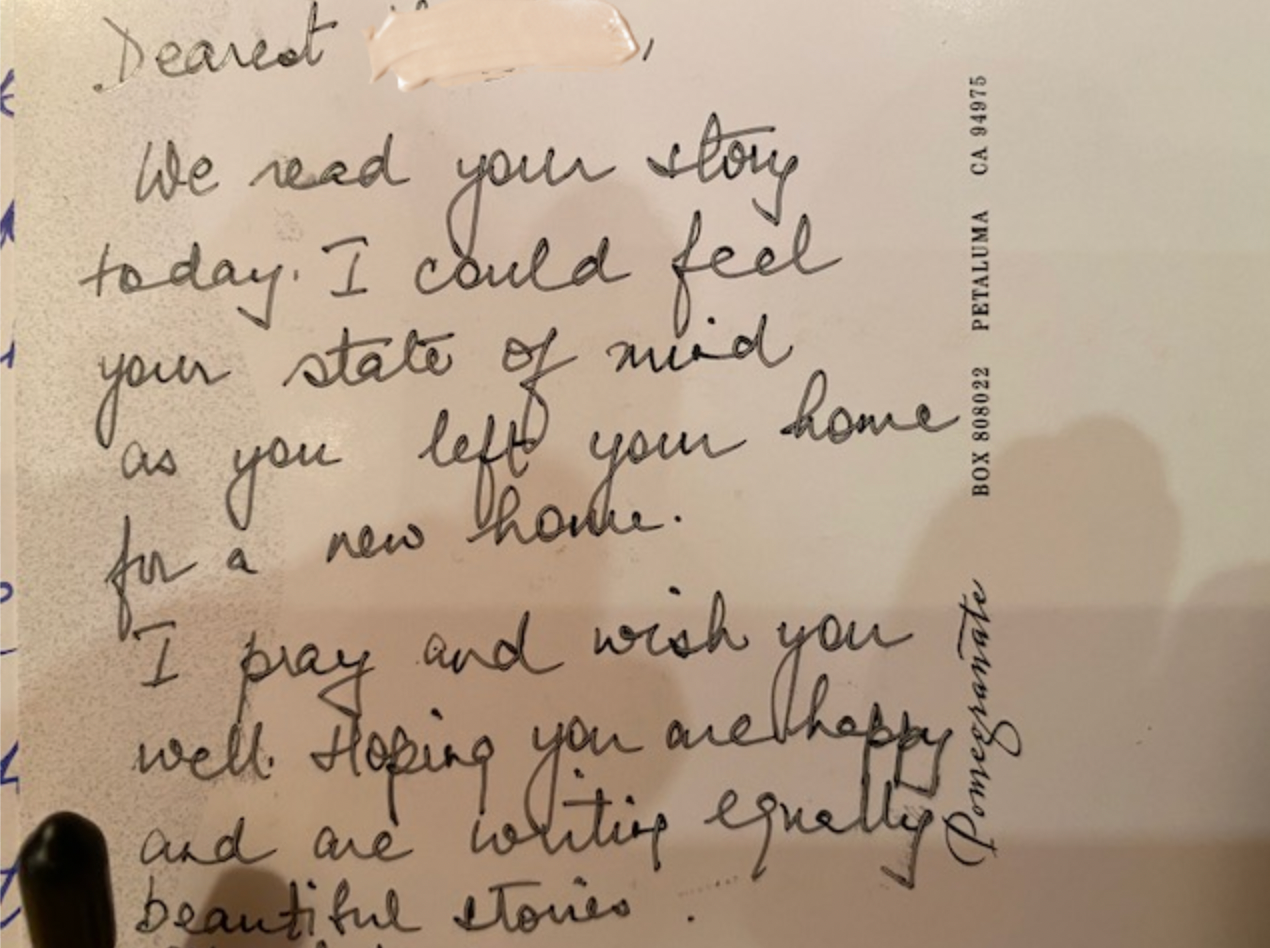 Dearest ,
We read your story
today. I could feel
your state of mind
as you left your home
for a new home.
I pray and wish you
well. Hoping you are happy
and are writing equally
beautiful stories.
Pomegranate BOX 808022 PETALUMA CA 94975